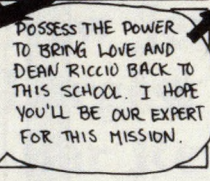 POSSESS THE POWER
TO BRING LOVE AND
DEAN RICCIO BACK TO
THIS SCHOOL. I HOPE
YOU'LL BE OUR EXPERT
FOR THIS MISSION.